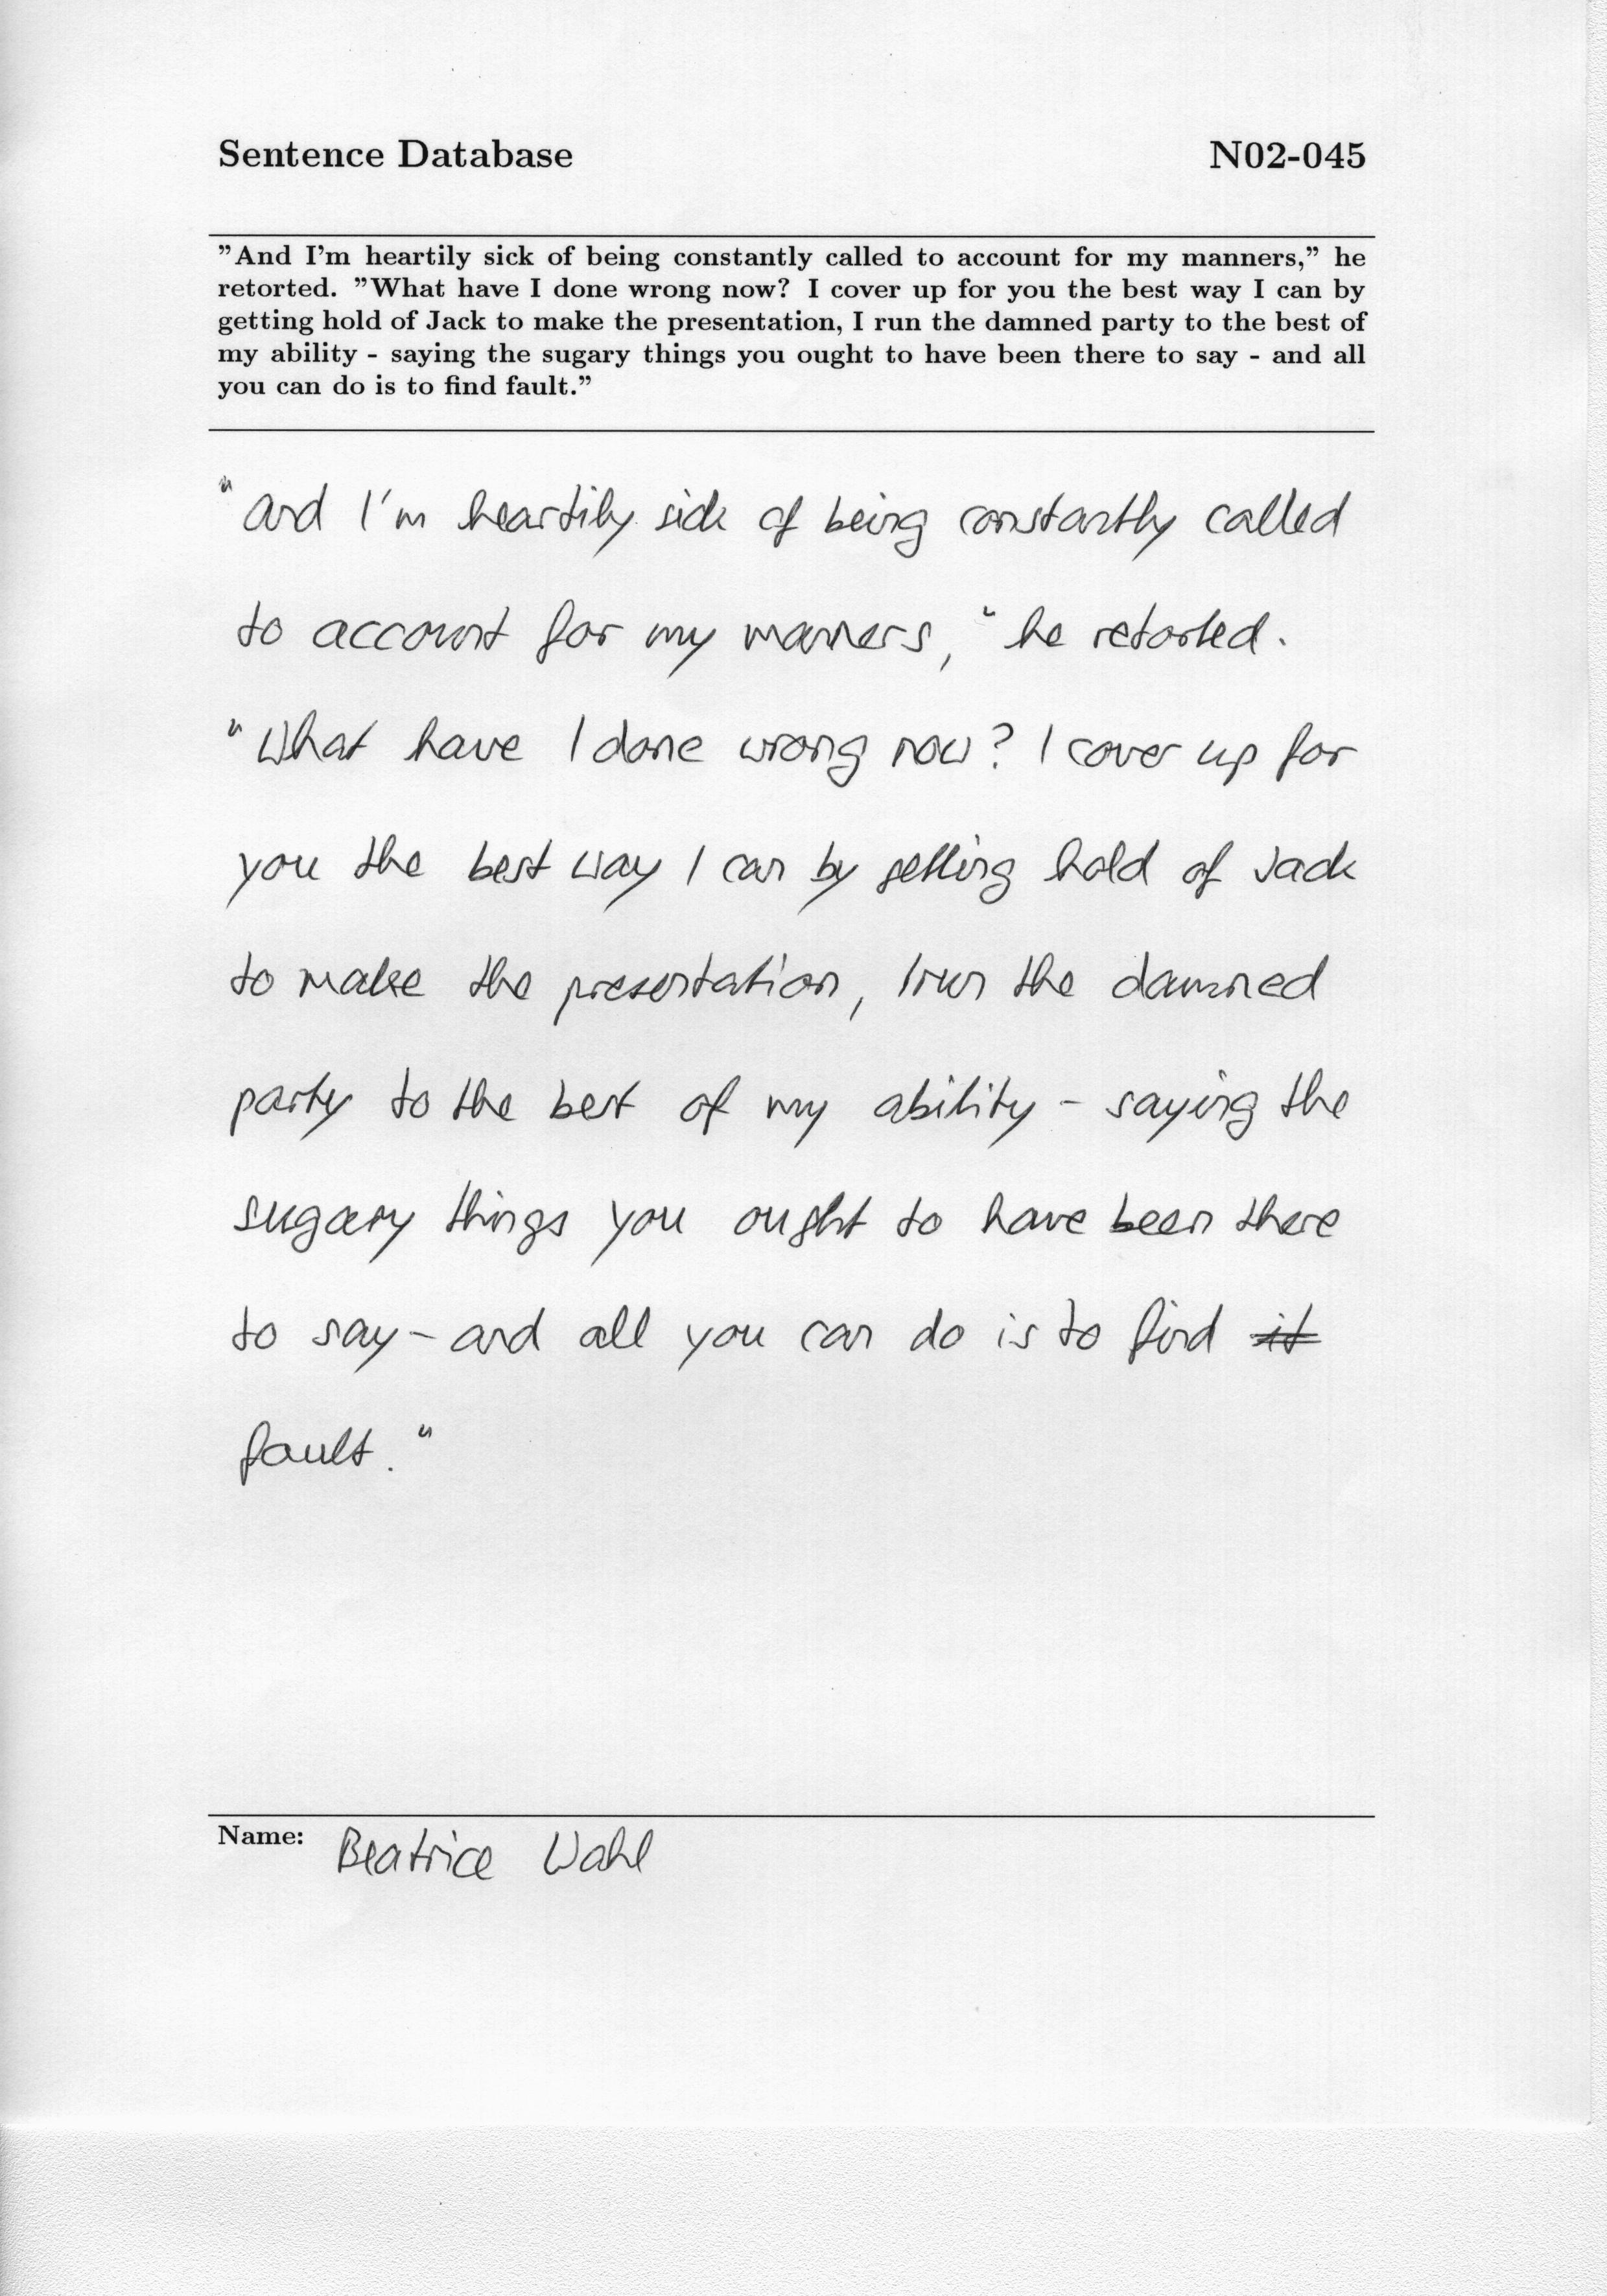 Sentence Database N02-045
"And I'm heartily sick of being constantly called to account for my manners," he
retorted. "What have I done wrong now? I cover up for you the best way I can by
getting hold of Jack to make the presentation, I run the damned party to the best of
my ability - saying the sugary things you ought to have been there to say - and all
you can do is to find fault."
"And I'm heartily sick of being constantly called
to account for my manners," he retorted.
"What have I done wrong now? I cover up for
you the best way I can by getting hold of Jack
to make the presentation, I run the damned
party to the best of my ability - saying the
sugary things you ought to have been there
to say - and all you can do is to find it
fault."
Name: Beatrice Wahl